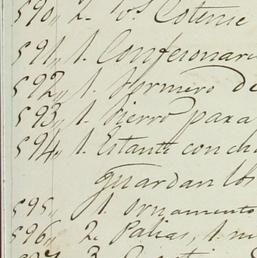 590,, 2. vs. Cotense
591,, 1. Confesionari
592,, 1. Hormero de
593,, 1. Fierro para
594,, 1. Estante con ch
guardan los
595,, 1. ornamento
596,, 2. Palias, 1. m
597,, 3.